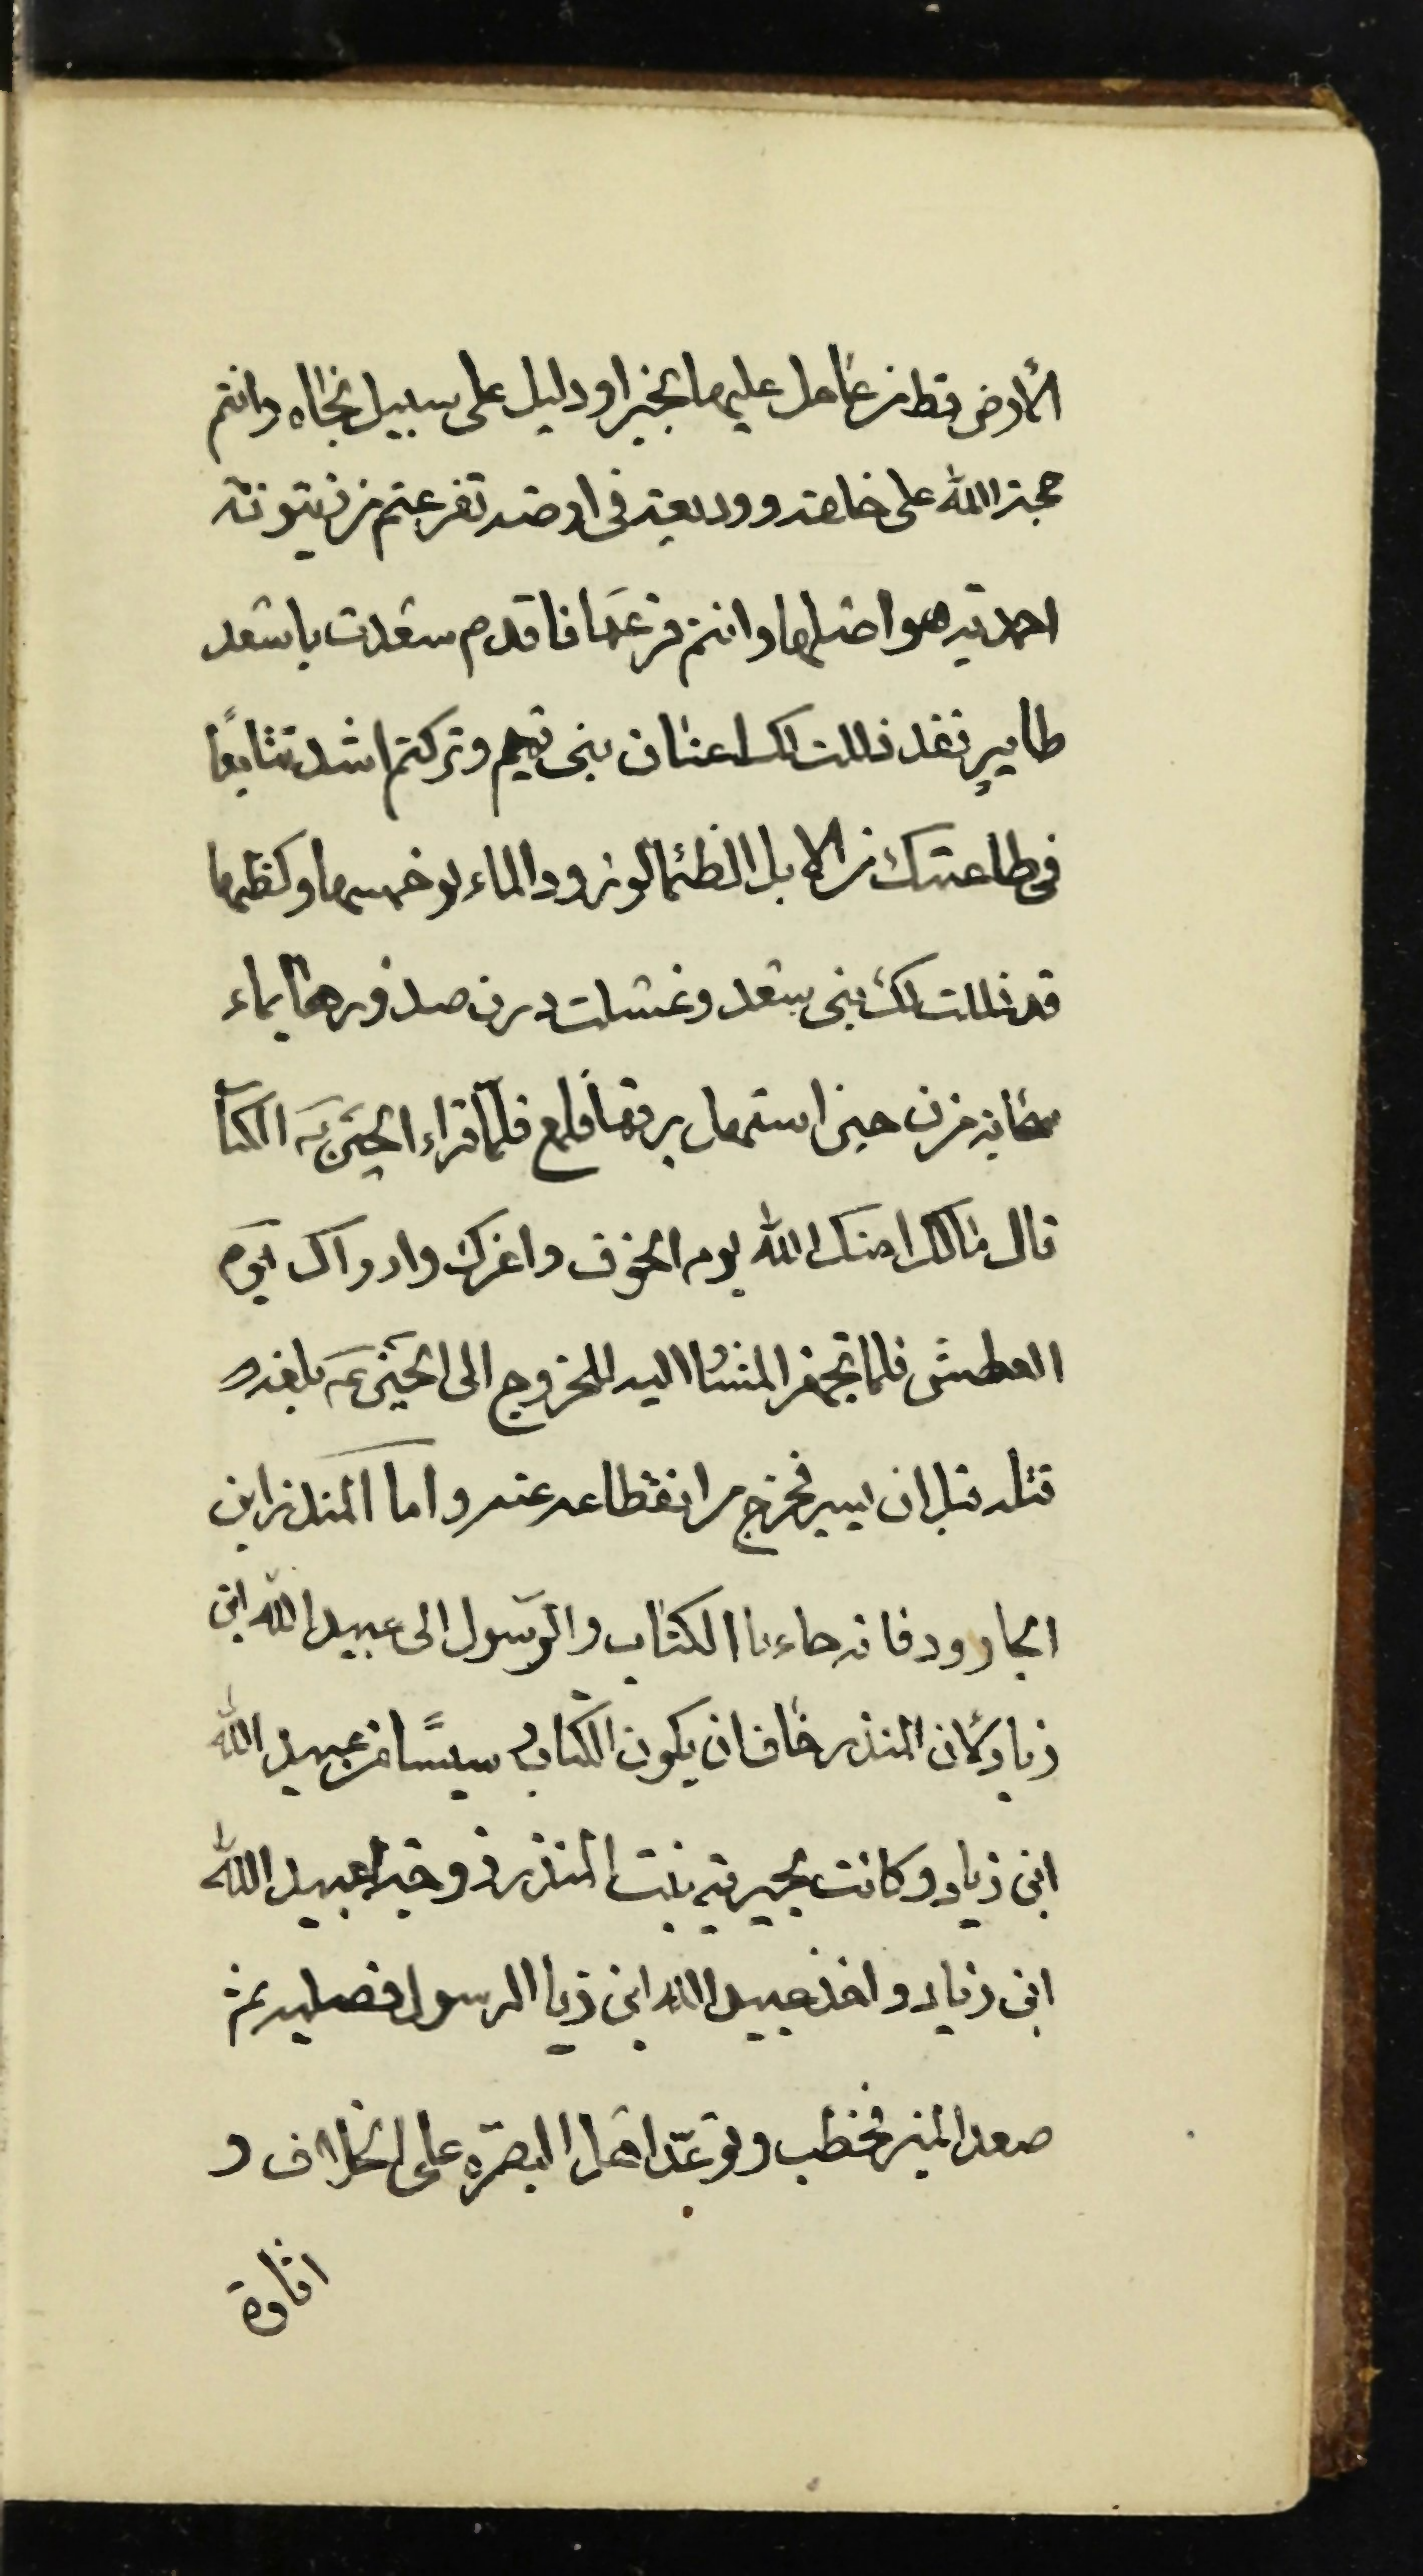 الأرض قط من عامل عليها بخير او دليل على سبيل نجاه وانتم
حجة الله على خلقه ووديعته فى ارضه تفرعتم من زيتونة
احمدية هو اصلها وانتم فرعها فاقدم سعدت باسعد
طاير فقد ذللت لك اعناق بنى تميم وتركتم اشد تتابعًا
فى طاعتك من الابل الظمأ لورود الماء يوم خمسها وكظها
قد ذللت لك بنى سعد وغسلت درن صدورها بماء
سحابة مزن حين استهل برقها فلمع فلمّا قراء الحسين ع الكتاب
قال مالك امنك الله يوم الخوف واعزك وارواك يوم
العطش فلما تجهز المشار اليه للخروج الى الحسين ع بلغه
قتله قبل ان يسير فجزع من انقطاعه عنه واما المنذر ابن
الجارود فانه جاء بالكتاب والرسول الى عبيد الله ابن
زياد لأن المنذر خاف ان يكون الكتاب دسيسًا من عبيد الله
ابن زياد وكانت بحيرية بنت المنذر زوجة لعبيد الله
ابن زياد واخذ عبيد الله ابن زيا الرسول فصلبه ثم
صعد المنبر فخطب وتوعّد اهل البصرة على الخلاف و
اثارة